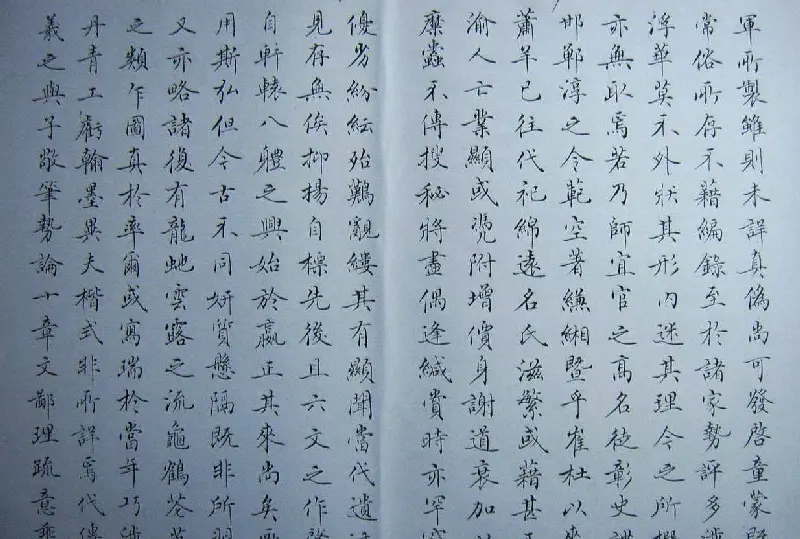 軍所製雖則未詳真偽尚可發啓童蒙既
常俗所存不藉編錄至於諸家勢評多涉
浮華莫不外狀其形內迷其理今之所撰
亦無取焉若乃師宜官之高名徒彰史諜
邯鄲淳之令範空著縑緗暨乎崔杜以來
蕭羊已往代祀綿遠名氏滋繁或藉甚
渝人亡業顯或憑附增價身謝道衰加以
糜蠹不傳搜秘將盡偶逢緘賞時亦罕
優劣紛紜殆難覼縷其有顯聞當代遺
見存無俟抑揚自標先後且六文之作
自軒轅八體之興始於嬴正其來尚矣
用斯弘但今古不同妍質懸隔既非所習
又亦略諸復有龍虵雲露之流龜鶴花
之類乍圖真於率爾或寫瑞於當年巧涉
丹青工虧翰墨異夫楷式非所詳焉代傳
羲之與子敬筆勢論十章文鄙理疏意乖